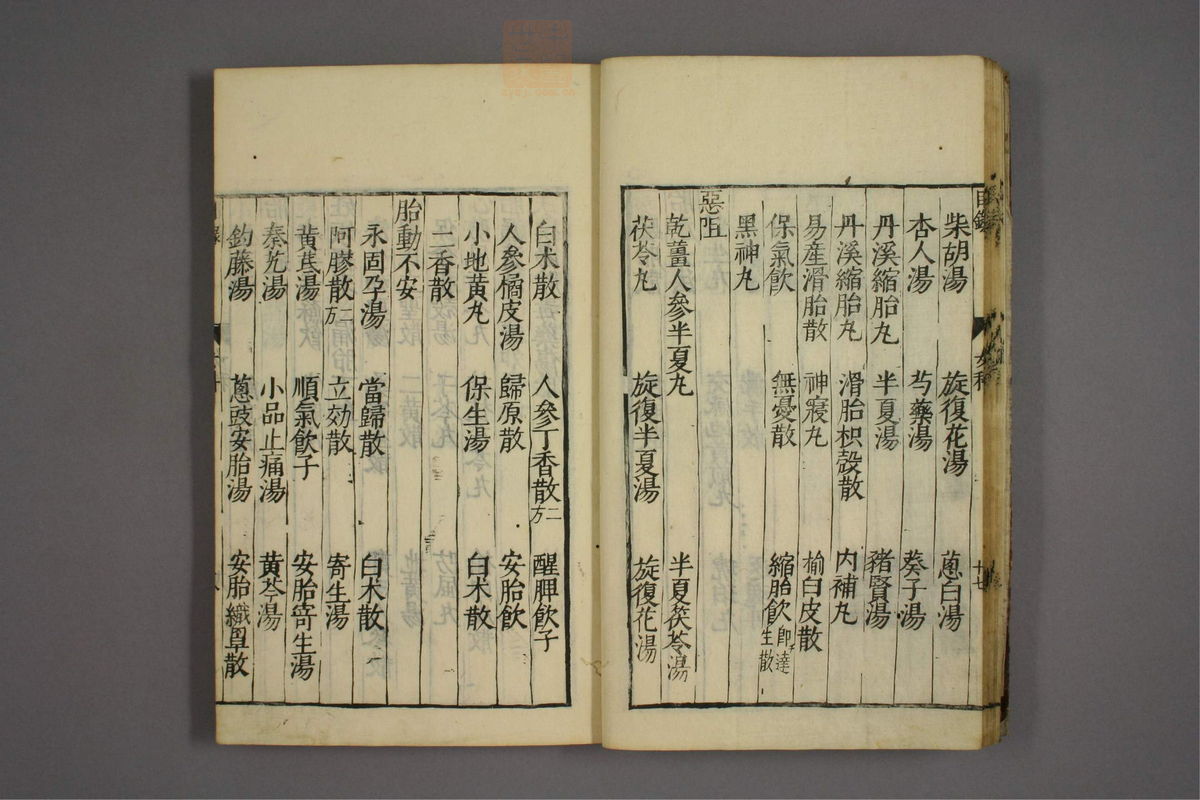 柴胡湯 旋復花湯 蔥白湯
杏人湯 芍藥湯 葵子湯
丹溪縮胎丸 半夏湯 豬腎湯
丹溪縮胎丸 滑胎枳殼散 内補丸
易産滑胎散 神寢丸 榆白皮散
保氣飲 無憂散 縮胎飲即達生散
黑神丸
惡阻
乾薑人參半夏丸 半夏茯苓湯
茯苓丸 旋復半夏湯 旋復花湯
白术散 人參丁香散二方 醒脾飲子
人參橘皮湯 歸原散 安胎飲
小地黄丸 保生湯 白术散
二香散
胎動不安
永固孕湯 當歸散 白术散
阿膠散二方 立効散 寄生湯
黄芪湯 順氣飲子 安胎寄生湯
秦艽湯 小品止痛湯 黄芩湯
鈎藤湯 蔥豉安胎湯 安胎鐵罩散